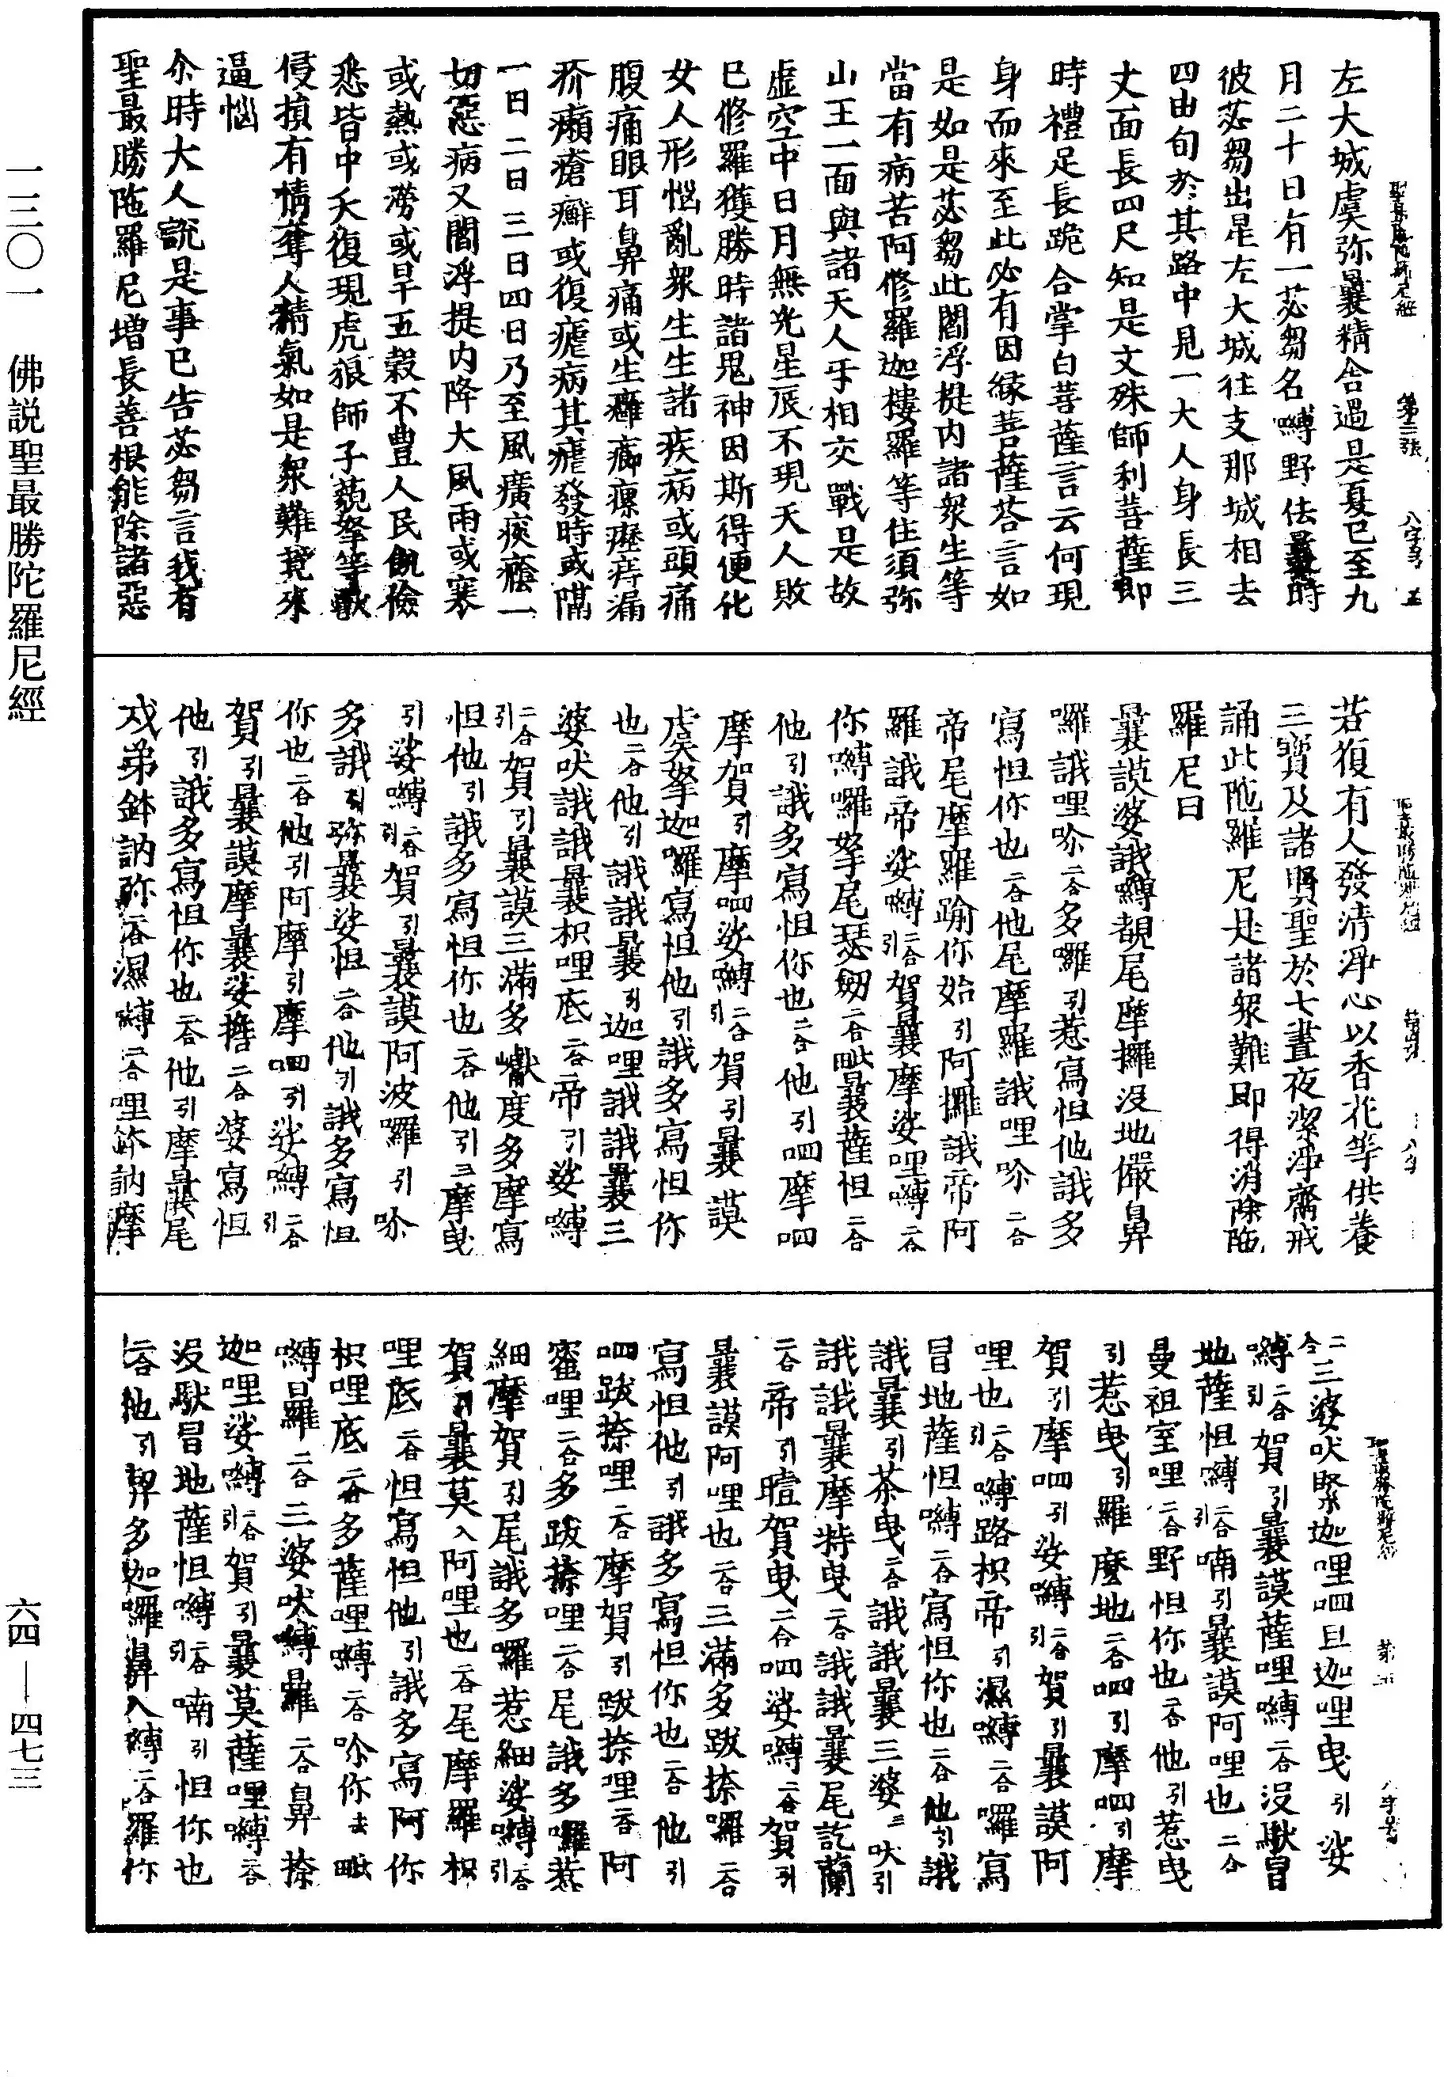 左大城虞弥曩精舍過是夏已至九
月二十日有一苾芻名嚩野佉曩時
彼苾芻出是左大城往支那城相去
四由旬於其路中見一大人身長三
丈面長四尺知是文殊師利菩薩即
時禮足長跪合掌白菩薩言云何現
身而來至此必有因緣菩薩荅言如
是如是苾芻此閻浮提内諸衆生等
當有病苦阿修羅迦樓羅等住須弥
山王一面與諸天人乎相交戰是故
虚空中日月無光星辰不現天人敗
已修羅獲勝時諸鬼神因斯得便化
女人形惱亂衆生生諸疾病或頭痛
腹痛眼耳鼻痛或生癰癤瘰癧痔漏
疥癩瘡癬或復瘧病其瘧發時或隔
一日二日三日四日乃至風癀痰癊一
切惡病又閻浮提内降大風雨或寒
或熱或澇或旱五穀不豊人民飢儉
悉皆中夭復現虎狼師子藐拏等獸
侵損有情奪人精氣如是衆難競來
逼惱
尒時大人說是事已告苾芻言我有
聖最勝陁羅尼增長善根能除諸惡
若復有人發清淨心以香花等供養
三寳及諸賢聖於七晝夜潔淨齋戒
誦此陁羅尼是諸衆難即得消除陁
羅尼曰
曩謨婆誐嚩覩尾摩攞没地儼鼻
囉誐哩吤二合多囉引惹寫怛他誐多
寫怛你也二合他尾摩羅誐哩吤二合
帝尾摩羅踰你始引阿攞誐帝阿
羅誐帝娑嚩二合賀曩摩娑哩嚩二合
你嚩囉拏尾瑟劒二合毗曩薩怛二合
他引誐多寫怛你也二合他引呬摩呬
摩賀引摩呬娑嚩引二合賀引曩謨
虞拏迦囉寫怛他引誐多寫怛你
也二合他引誐誐曩引迦哩誐誐曩三
婆吠誐誐曩枳哩底二合帝引娑嚩
引二合賀引曩謨三滿多巘度多摩寫
怛他引誐多寫怛你也二合他引三摩曳
引娑嚩引二合賀引曩謨阿波囉引吤
多誐引弥曩娑怛二合他引誐多寫怛
你也二合他引阿摩引摩呬引娑嚩引二合
賀引曩謨摩曩娑擔二合婆寫怛
他引誐多寫怛你也二合他引摩曩尾
戍弟鉢訥弥二合濕嚩二合哩鉢訥摩
二合三婆吠緊迦哩呬旦迦哩曳引娑
嚩引二合賀引曩謨薩哩嚩二合没馱冒
地薩怛嚩引二合喃引曩謨阿哩也二合
曼祖室哩二合野怛你也二合他引惹曳
引惹曳引羅麽地二合呬引摩呬引摩
賀引摩呬引娑嚩引二合賀引曩謨阿
哩也引二合嚩路枳帝引濕嚩二合囉寫
冒地薩怛嚩二合寫怛你也二合他引誐
誐曩引茶曳二合誐誐曩三婆二合吠引
誐誐曩摩特曳二合誐誐曩尾訖蘭
二合帝引曀賀曳二合呬娑嚩二合賀引
曩謨阿哩也二合三滿多跋捺囉二合
寫怛他引誐多寫怛你也二合他引
呬跋捺哩二合摩賀引跋捺哩二合阿
蜜哩二合多跋捺哩二合尾誐多囉惹
細摩賀引尾誐多囉惹細娑嚩引二合
賀引曩莫入阿哩也二合尾摩羅枳
哩底二合怛寫怛他引誐多寫阿你
枳哩底二合多薩哩嚩二合吤你去毗
嚩羅二合三婆吠嚩羅二合鼻捺
迦哩娑嚩引二合賀引曩莫薩哩嚩二合
没馱冒地薩怛嚩引二合喃引怛你也
二合他引鼻多迦囉鼻入嚩二合羅你
一三〇一　佛説聖最勝陀羅尼經
六四—四七三